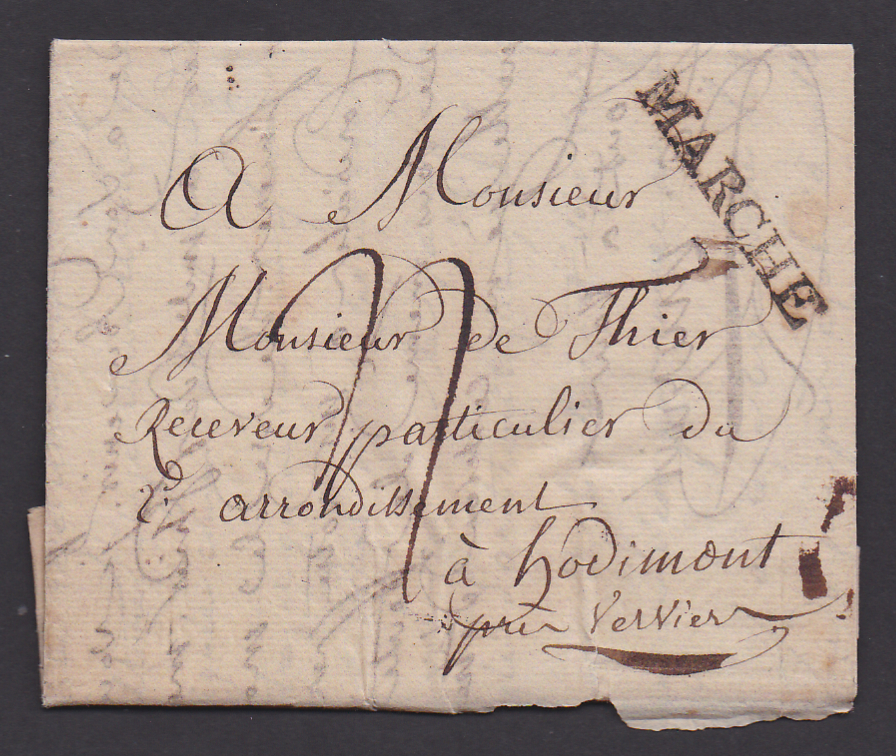 MARCHE
A Monsieur
Monsieur de Thier
Receveur particulier du
2d arrondissement
à hodimont
près Verviers